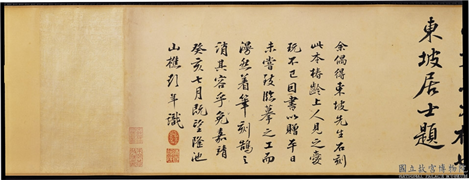 東坡居士題
余偶得東坡先生石刻
此本椿齡上人見之愛
玩不已因書以贈平日
未嘗臨摹之工而
漫然着筆刻鵠之
誚其容乎免嘉靖
癸亥七月既望隆池
山樵彭年識
國立故宮博物院